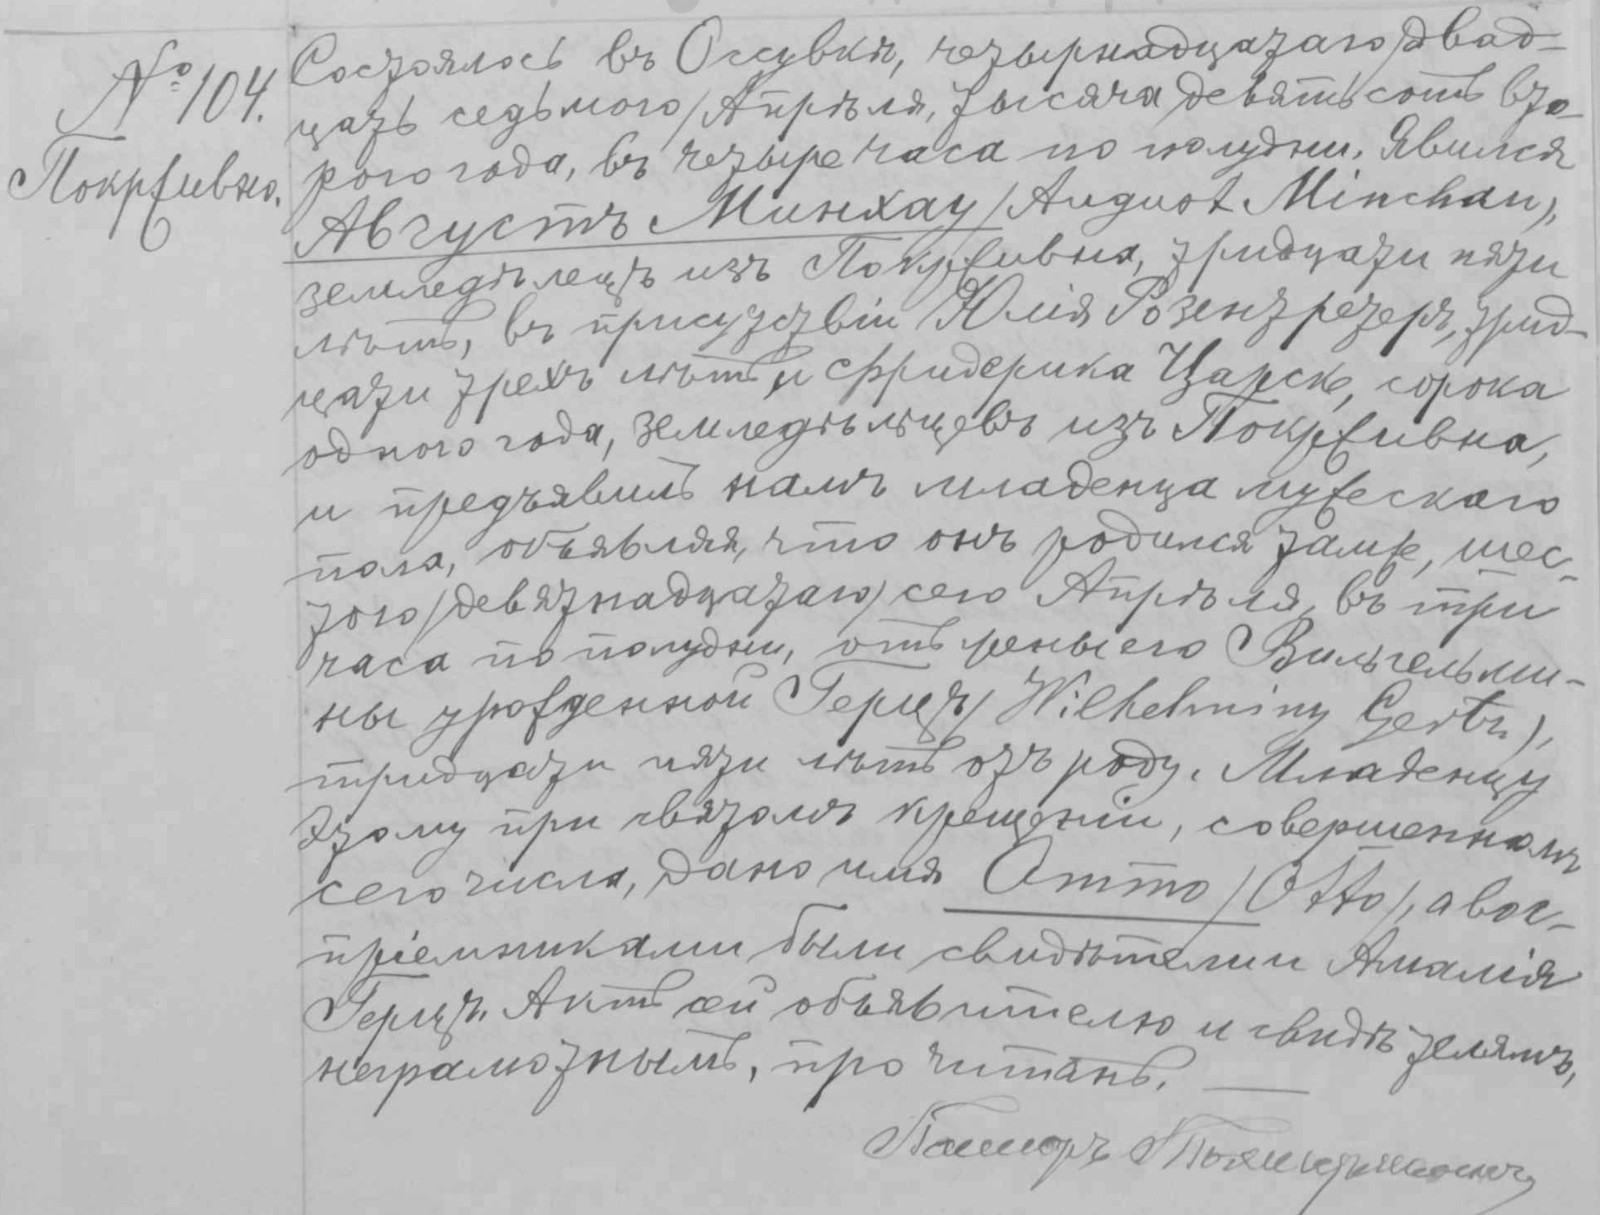 № 104.
Покрживно.
Состоялось въ Оссувкѣ, четырнадцатаго /двад-
цать седьмого/ Апрѣля, тысяча девятьсотъ вто-
рого года, въ четыре часа по полудни. Явился
Августъ Минхау /August Minchau/,
земледѣлецъ изъ Покрживна, тридцати пяти
лѣтъ, въ присутствіи Юлія Розентретеръ, трид-
цати трехъ лѣтъ, и Фридерика Царске, сорока
одного года, земледѣльцевъ изъ Покрживна,
и предъявилъ намъ младенца мужескаго
пола, объявляя, что онъ родился тамже, шес-
того /девятнадцатаго/ сего Апрѣля, въ три
часа по полудни, отъ жены его Вильгельми-
ны урожденной Герцъ /Wilhelminy Gertz/,
тридцати пяти лѣтъ отъ роду. Младенцу
этому при святомъ крещеніи, совершенномъ
сего числа, дано имя Отто /Otto/, а вос-
пріемниками были свидѣтели и Амалія
Герцъ. Актъ сей объявителю и свидѣтелямъ,
неграмотнымъ, прочитанъ.
Пасторъ